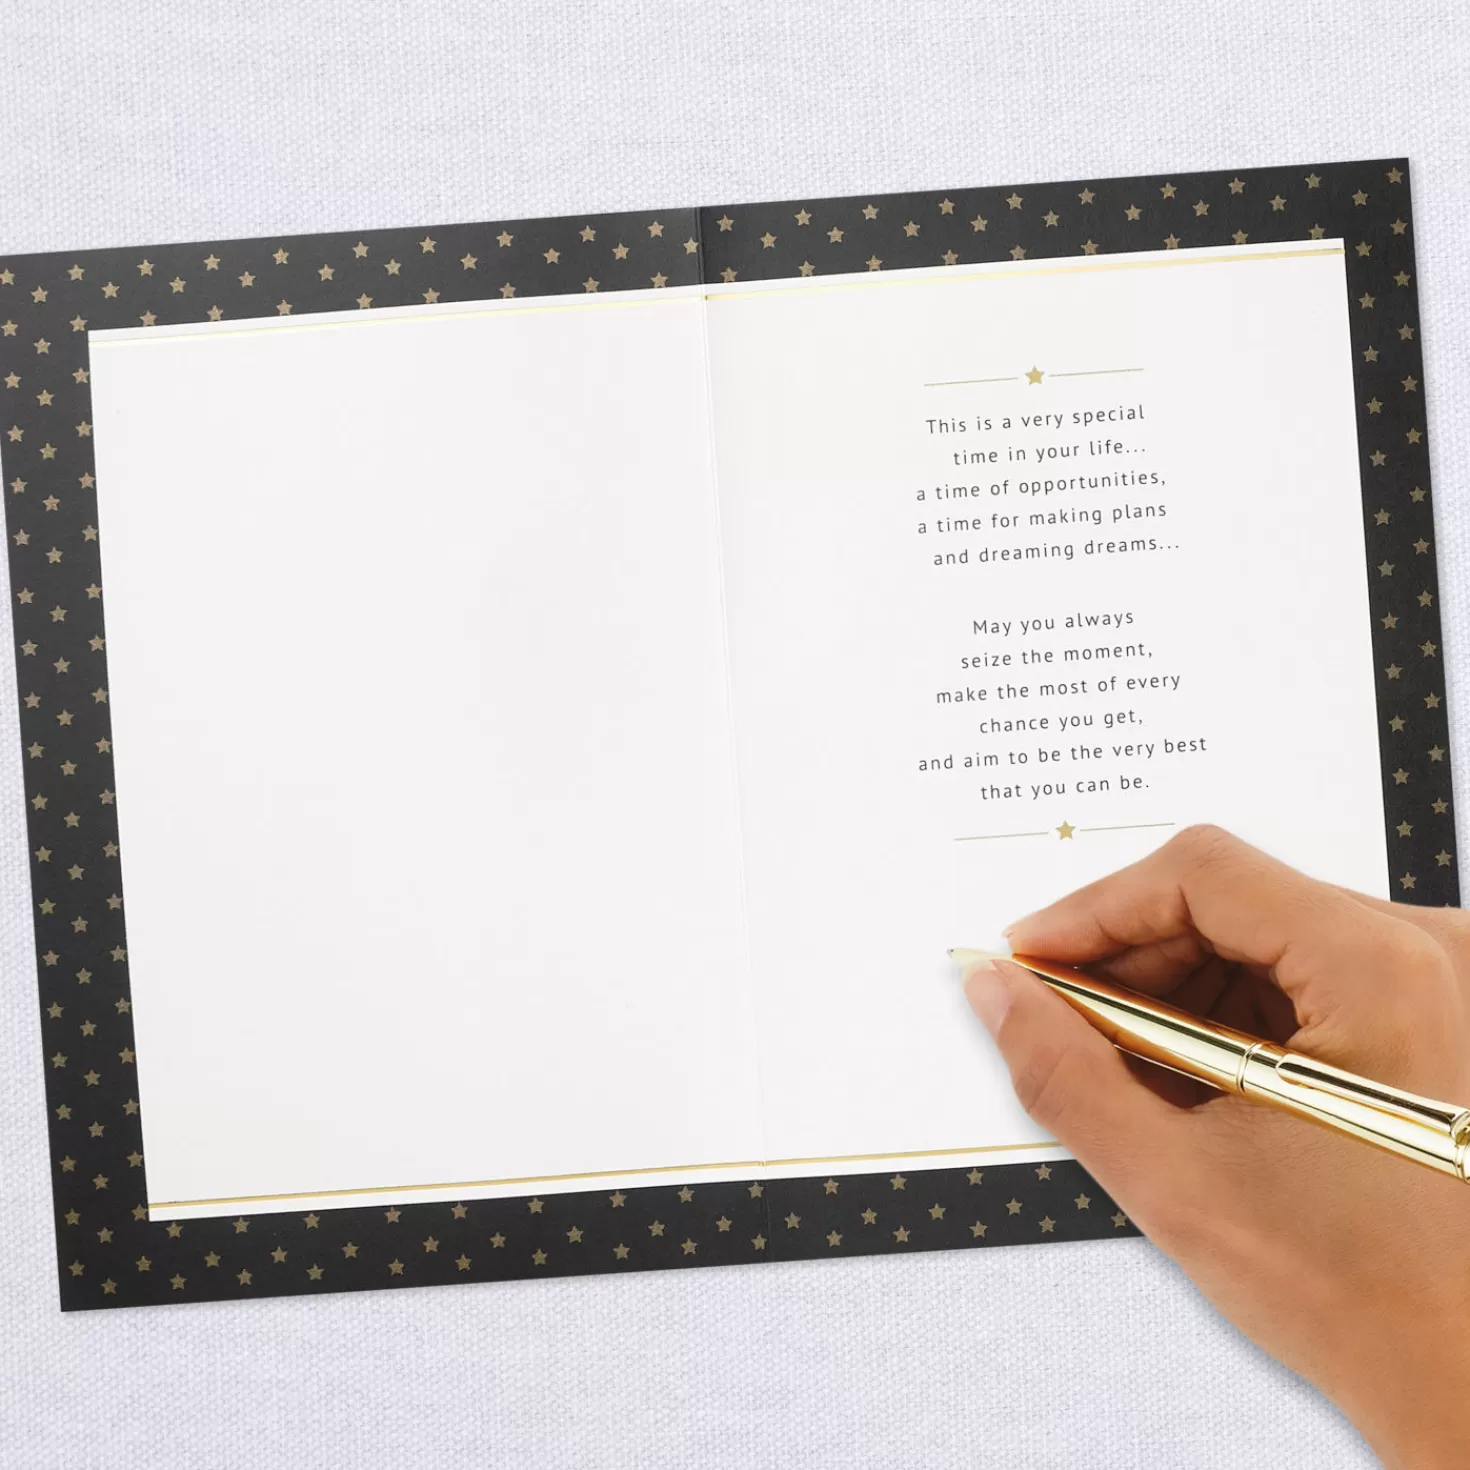 This is a very special
time in your life...
a time of opportunities,
a time for making plans
and dreaming dreams...
May you always
seize the moment,
make the most of every
chance you get,
and aim to be the very best
that you can be.